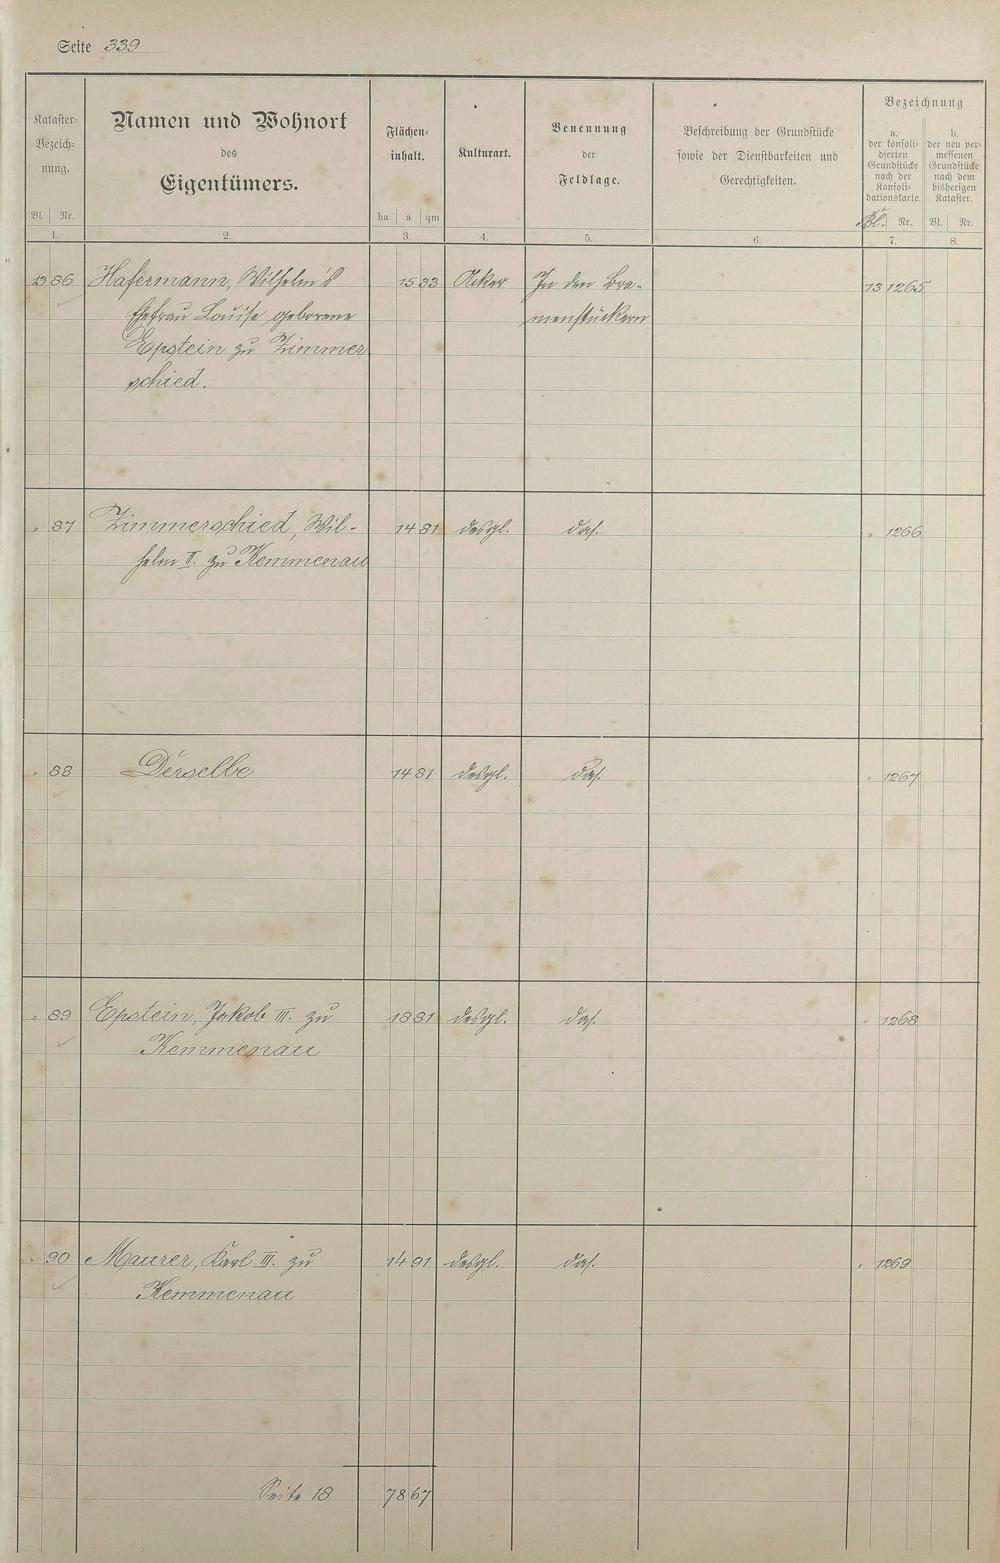 Seite 339
Kataster-
Bezeich-
nung.
Bl. Nr.
1.
Namen und Wohnort
des
Eigentümers.
2.
Flächen-
inhalt.
ha a qm
3.
Kulturart.
4.
Benennung
der
Feldlage.
5.
Beschreibung der Grundstücke
sowie der Dienstbarkeiten und
Gerechtigkeiten.
6.
Bezeichnung
a.
der konsoli-
dierten
Grundstücke
nach der
Konsoli-
dationskarte.
Bl. Nr.
7.
b.
der neu ver-
messenen
Grundstücke
nach dem
bisherigen
Kataster.
Bl. Nr.
8.
13 86 Hafermann, Wilhelm's 15 33 Acker In den Bre- 13 1265
Ehefrau Louise geborene menstückern
Epstein zu Zimmer
schied.
" 87 Zimmerschied, Wil- 14 81 desgl. das. " 1266
helm II. zu Kemmenau
" 88 Derselbe 14 81 desgl. das. " 1267
" 89 Epstein, Jakob III. zu 18 81 desgl. das. " 1268
Kemmenau
" 90 Maurer, Karl III. zu 14 91 desgl. das. " 1269
Kemmenau
Seite 18 78 67